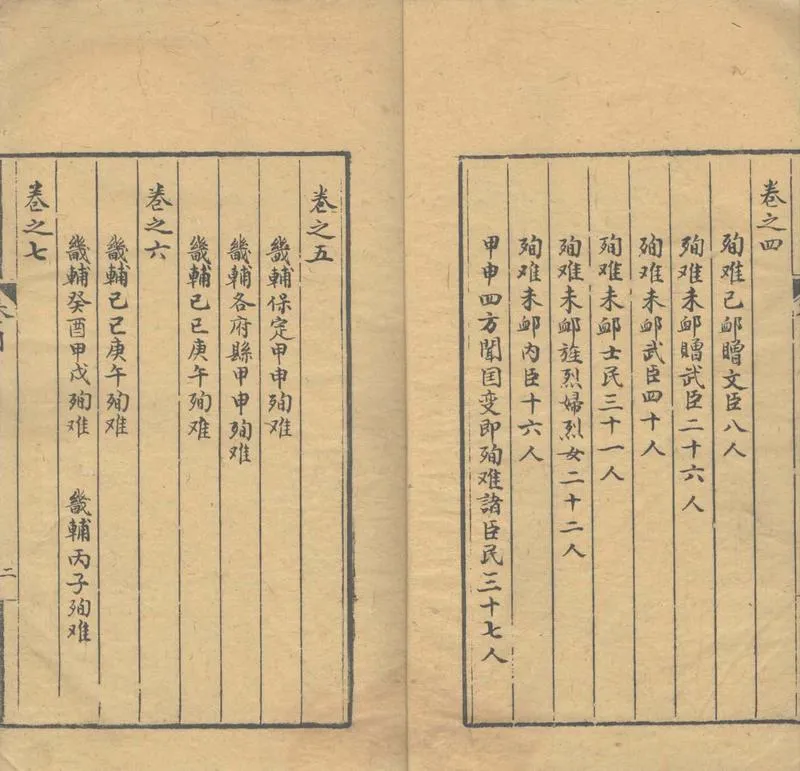 卷之四
殉难已卹贈文臣八人
殉难未卹贈武臣二十六人
殉难未卹武臣四十人
殉难未卹士民三十一人
殉难未卹旌烈婦烈女二十二人
殉难未卹内臣十六人
甲申四方聞囯变即殉难諸臣民三十七人
卷之五
畿輔保定甲申殉难
畿輔各府縣甲申殉难
畿輔己巳庚午殉难
卷之六
畿輔己巳庚午殉难
畿輔癸酉甲戌殉难　畿輔丙子殉难
卷之七
二